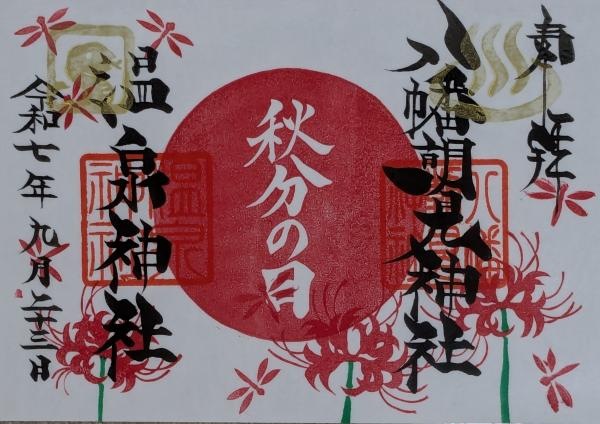 奉拝
八幡朝見神社
秋分の日
温泉神社
令和七年九月二十三日